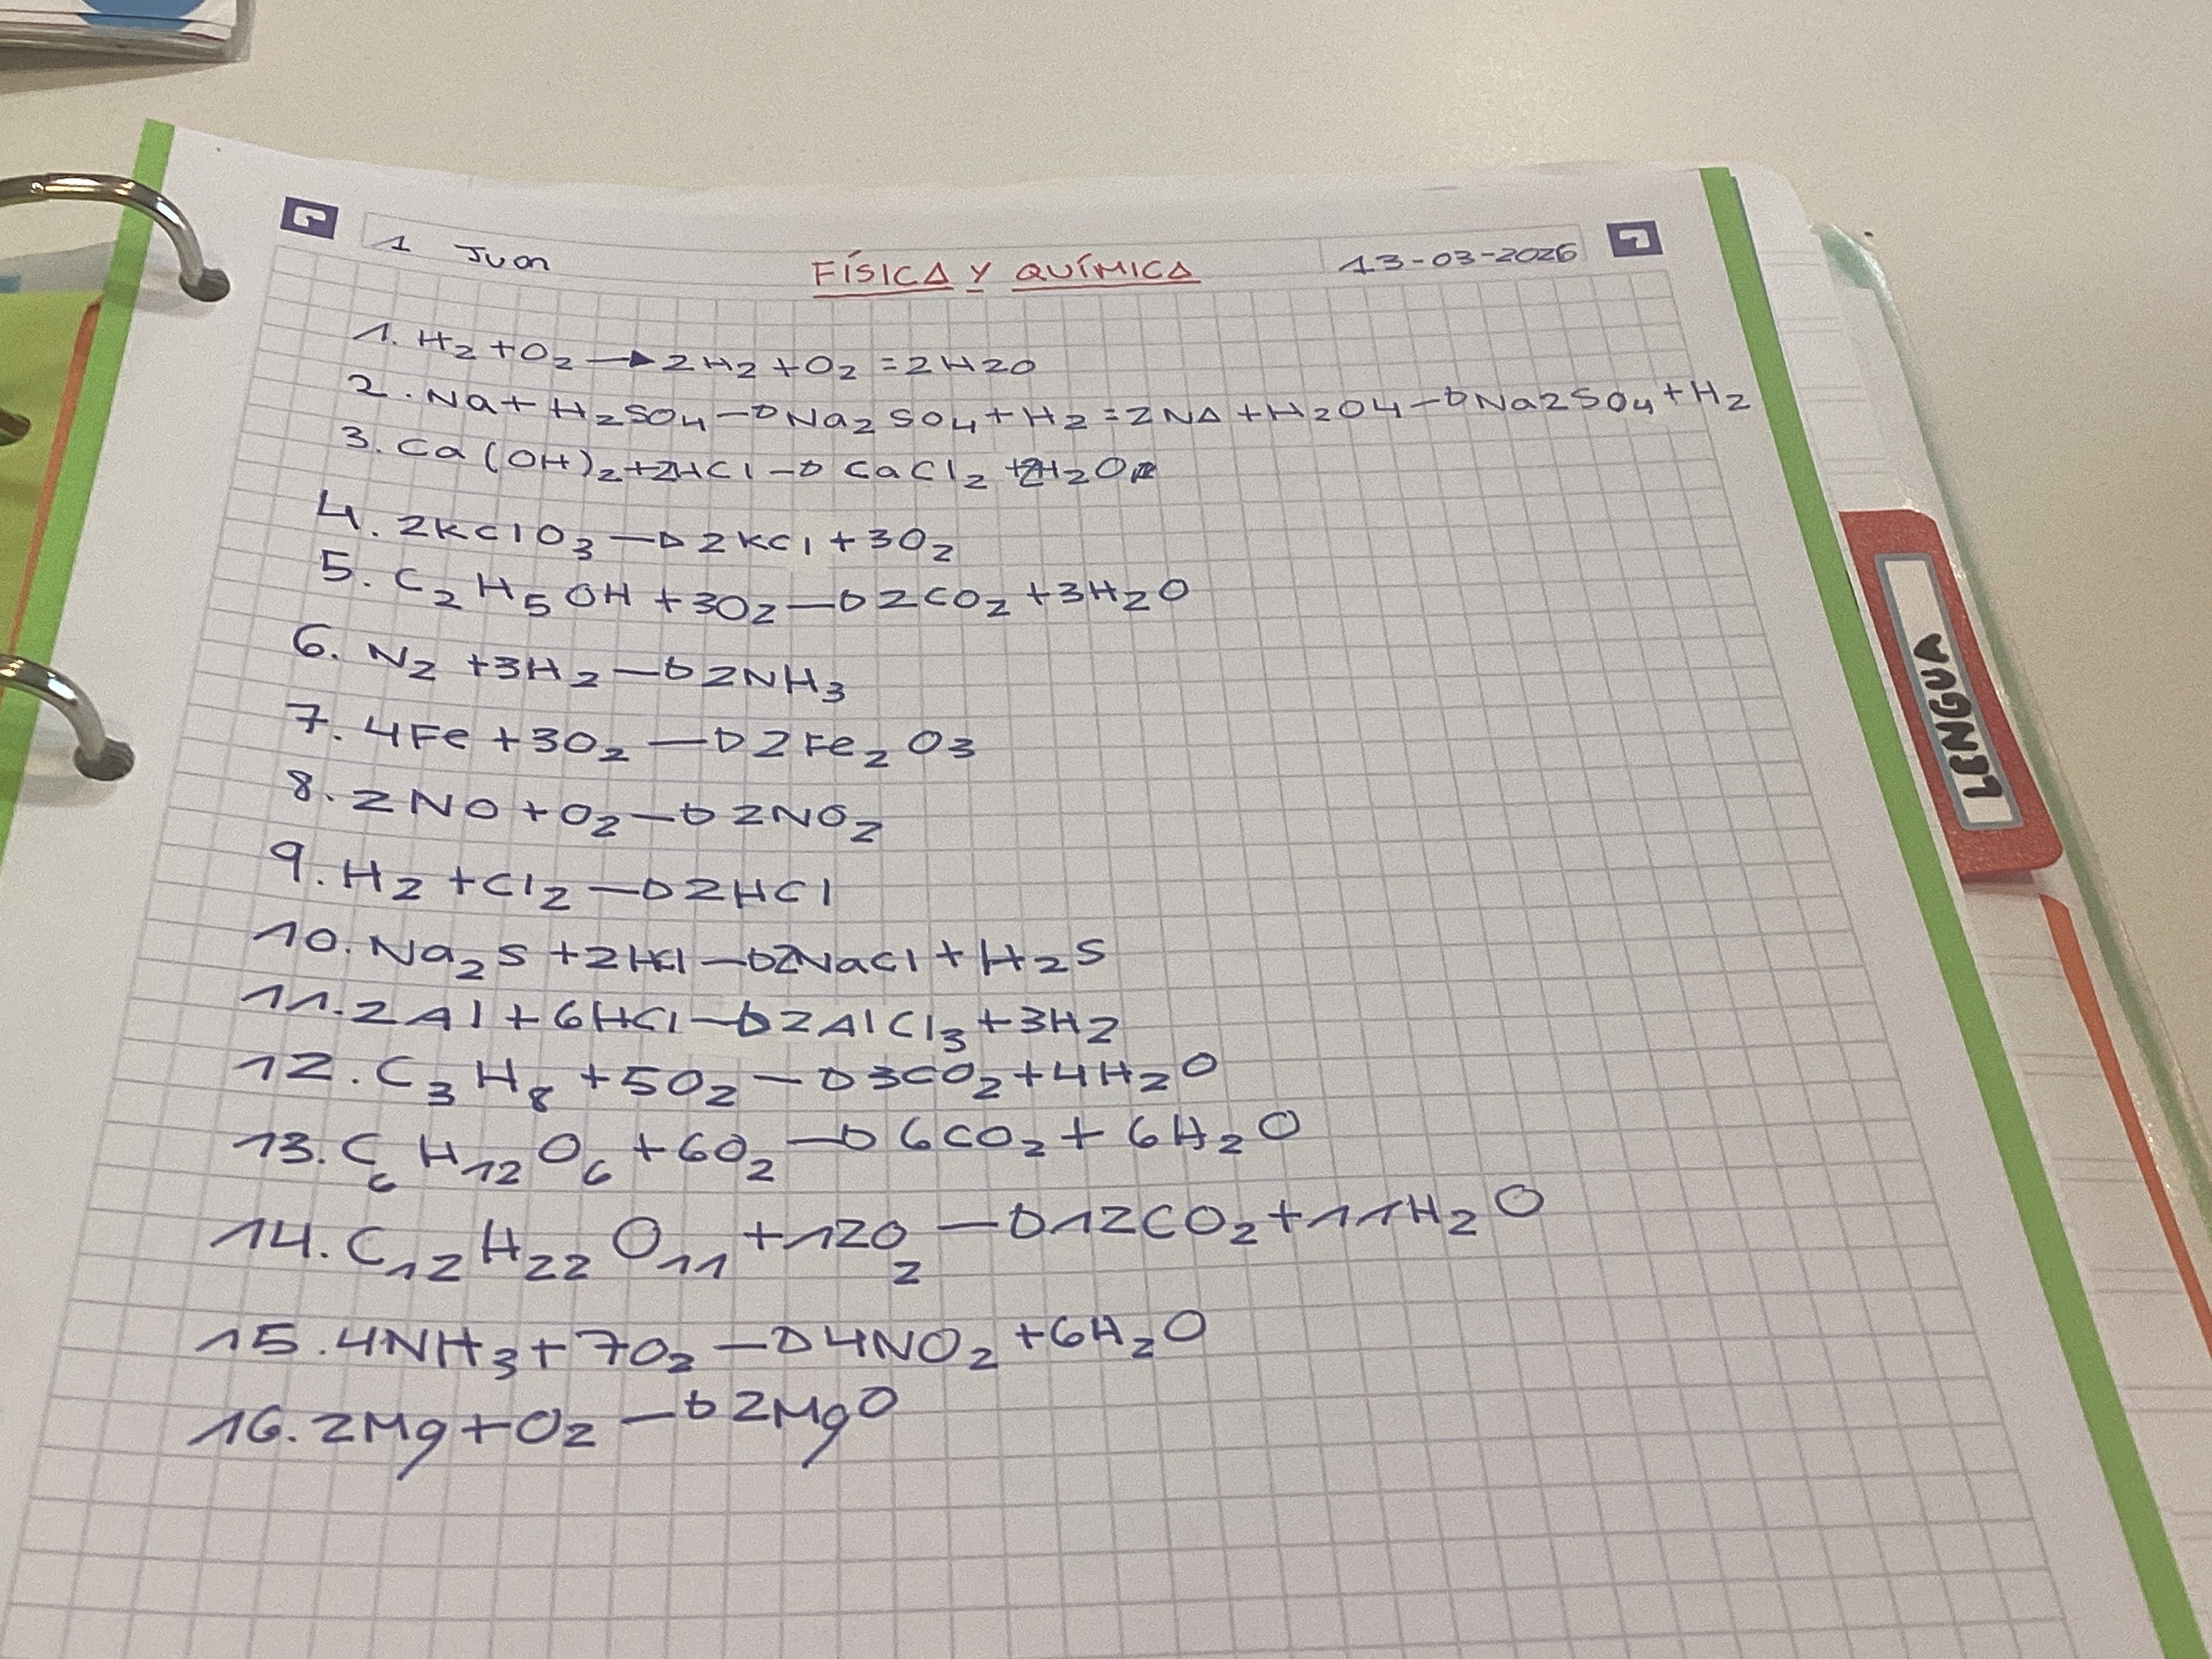 1 Juan FÍSICA Y QUÍMICA 13-03-2026
1. H₂ + O₂ → 2H₂ + O₂ = 2H2O
2. Na + H₂SO₄ → Na₂SO₄ + H₂ = 2NA + H₂O4 → Na2SO₄ + H₂
3. Ca(OH)₂ + 2HCl → CaCl₂ + 2H₂O
4. 2KClO₃ → 2KCl + 3O₂
5. C₂H₅OH + 3O₂ → 2CO₂ + 3H₂O
6. N₂ + 3H₂ → 2NH₃
7. 4Fe + 3O₂ → 2Fe₂O₃
8. 2NO + O₂ → 2NO₂
9. H₂ + Cl₂ → 2HCl
10. Na₂S + 2HCl → 2NaCl + H₂S
11. 2Al + 6HCl → 2AlCl₃ + 3H₂
12. C₃H₈ + 5O₂ → 3CO₂ + 4H₂O
13. C₆H₁₂O₆ + 6O₂ → 6CO₂ + 6H₂O
14. C₁₂H₂₂O₁₁ + 12O₂ → 12CO₂ + 11H₂O
15. 4NH₃ + 7O₂ → 4NO₂ + 6H₂O
16. 2Mg + O₂ → 2MgO
LENGUA